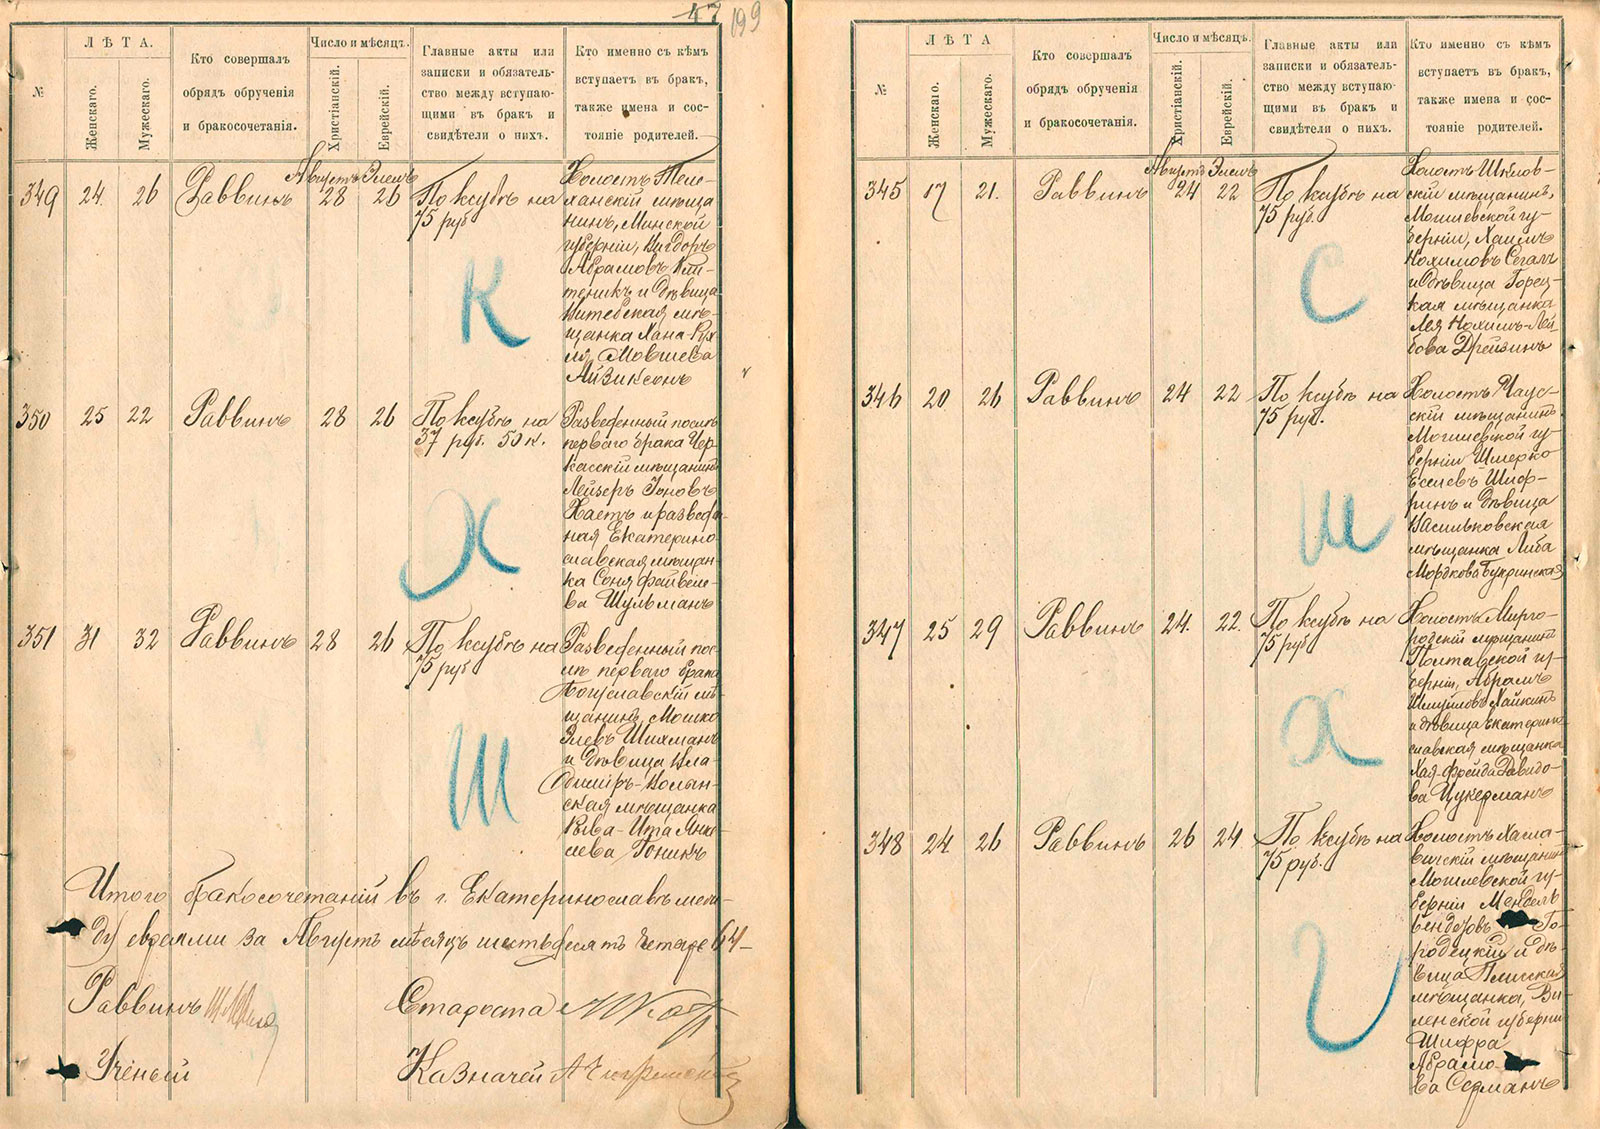 47 199
ЛѢТА.
№
Женскаго.
Мужескаго.
Кто совершалъ
обрядъ обрученія
и бракосочетанія.
Число и мѣсяцъ.
Христіанскій.
Еврейскій.
Главные акты или
записки и обязатель-
ство между вступаю-
щими въ бракъ и
свидѣтели о нихъ.
Кто именно съ кѣмъ
вступаетъ въ бракъ,
также имена и сос-
тояніе родителей.
Августъ Элелъ
349 24. 26 Раввинъ 28 26
По ксубѣ на
75 руб
Холостъ Теле-
ханскій мѣща
нинъ, Минской
губерніи, Вигдоръ
Абрамовъ Кли-
теникъ и дѣвица
Витебская мѣ-
щанка Хана-Рух
ля Мовшева
Айзиксонъ
К
350 25 22 Раввинъ 28 26
По ксубѣ на
37 руб. 50 к.
Разведенный послѣ
перваго брака Чер-
касскій мѣщанинъ
Лейзеръ Іоновъ
Хаетъ и разведен-
ная Екатерино-
славская мѣщан-
ка Соня Файвеле-
ва Шульманъ
Х
351 31 32 Раввинъ 28 26
По ксубѣ на
75 руб
Разведенный пос-
лѣ перваго брака
Богуславскій мѣ-
щанинъ, Мошко
Элевъ Шихманъ
и дѣвица Вла-
диміръ-Волын-
ская мѣщанка
Рива-Ита Янке-
лева Гоникъ
Ш
Итого бракосочетаній въ г. Екатеринославѣ меж-
ду евреями за Августъ мѣсяцъ шестьдесятъ четыре 64-
Раввинъ
Староста
Учёный
Казначей
ЛѢТА
№
Женскаго.
Мужескаго.
Кто совершалъ
обрядъ обрученія
и бракосочетанія.
Число и мѣсяцъ.
Христіанскій.
Еврейскій.
Главные акты или
записки и обязатель-
ство между вступаю-
щими въ бракъ и
свидѣтели о нихъ.
Кто именно съ кѣмъ
вступаетъ въ бракъ,
также имена и сос-
тояніе родителей.
Августъ Элелъ
345 17 21. Раввинъ 24 22
По ксубѣ на
75 руб.
Холостъ Шклов-
скій мѣщанинъ,
Могилевской гу-
берніи, Хаимъ
Нохимовъ Сегалъ
и дѣвица Горец-
кая мѣщанка
Лея Нохимъ-Лей
бова Дрейзинъ
С
346 20 26 Раввинъ 24 22
По ксубѣ на
75 руб.
Холостъ Чаус-
скій мѣщанинъ
Могилевской гу-
берніи Шмерко
Еселевъ Шиф-
ринъ и дѣвица
Васильковская
мѣщанка Либа
Мордкова Букринская
Ш
347 25 29 Раввинъ 24. 22.
По ксубѣ на
75 руб
Холостъ Мирго-
родскій мѣщанинъ
Полтавской гу-
берніи, Абрамъ
Шмуйловъ Хайкинъ
и дѣвица Екатерино-
славская мѣщанка
Хая-Фрейда Давидо-
ва Цукерманъ
Х
348 24 26 Раввинъ 26 24
По ксубѣ на
75 руб.
Холостъ Хасла-
вичскій мѣщанинъ
Могилевской гу-
берніи Мендель
Бендетовъ Го-
родецкій и дѣ-
вица
мѣщанка, Ви-
ленской губерніи
Шифра
Абрамо-
ва Серманъ